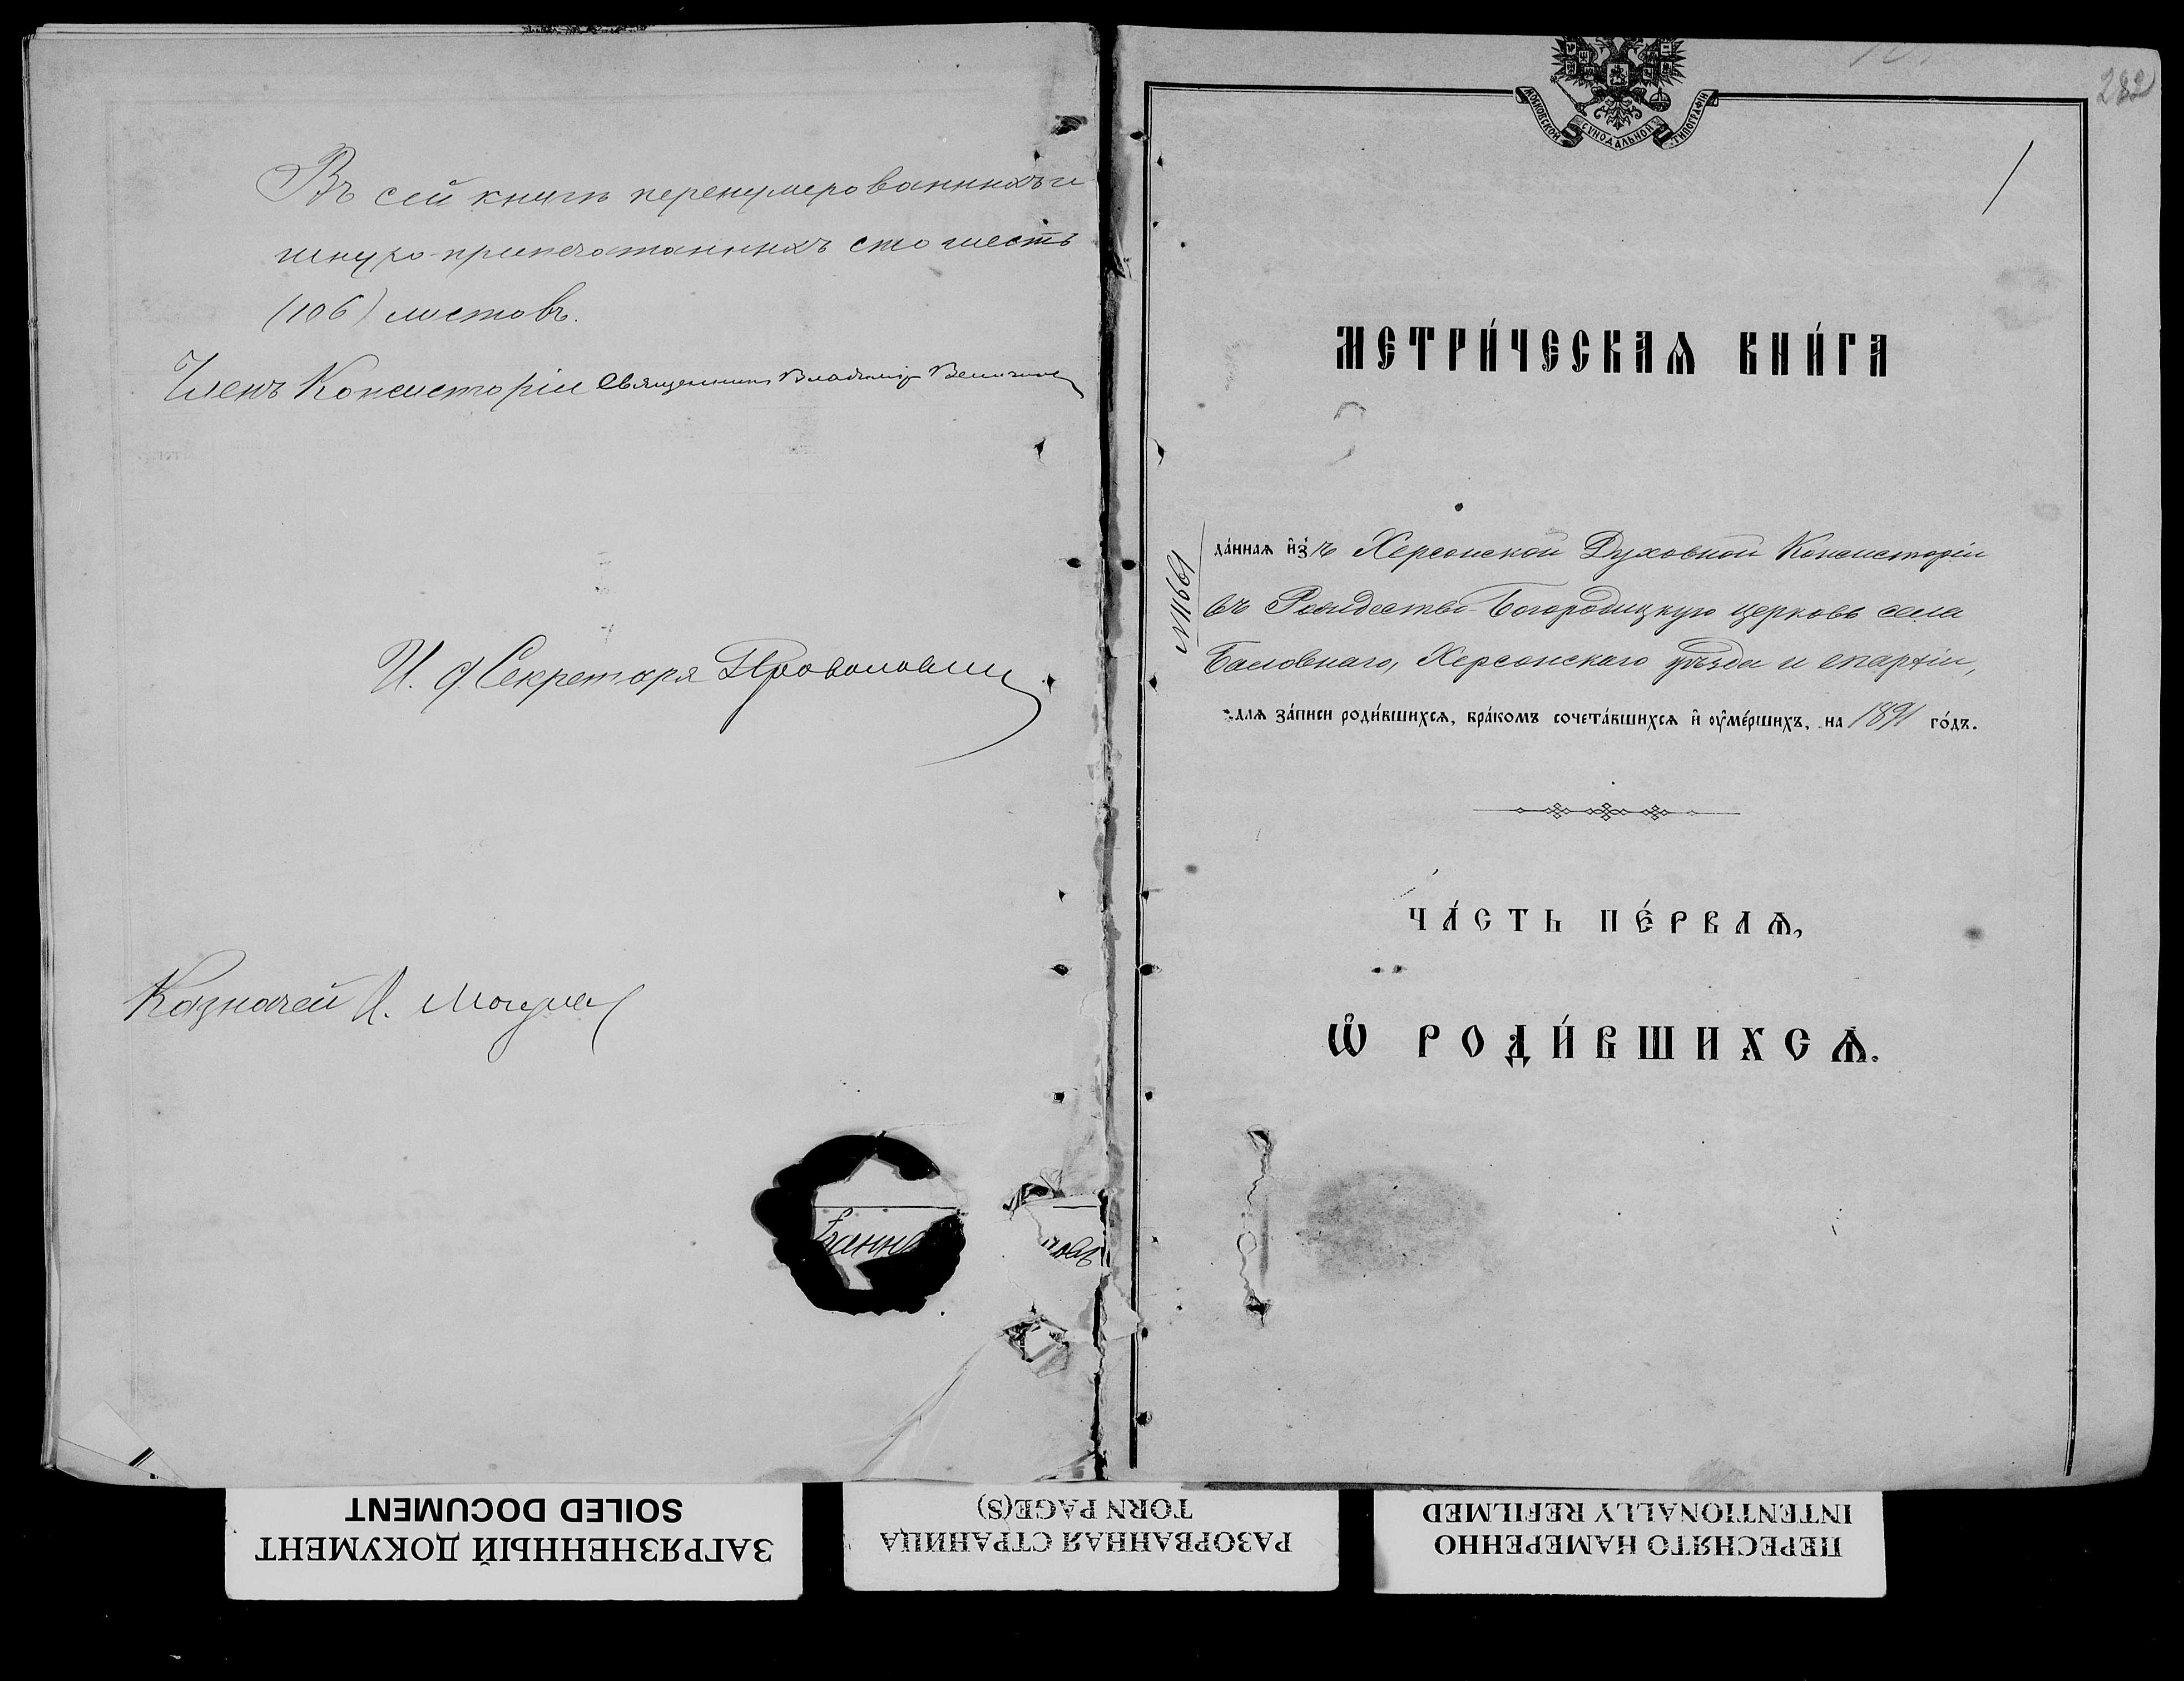 Въ сей книгѣ перенумерованныхъ и
шнуро-припечатанныхъ сто шесть
(106) листовъ.
Членъ Консисторіи Священникъ Владиміръ
И. д. Секретаря
Казначей
282
МОСКОВСКОЙ СѴНОДАЛЬНОЙ ТИПОГРАФІИ
1
МЕТРИ́ЧЕСКАѦ КНИ́ГА
№11661
да́ннаѧ и҆зъ Херсонской Духовной Консисторіи
въ Рождество-Богородицкую церковь села
Баловнаго, Херсонскаго уѣзда и епархіи,
длѧ за́писи роди́вшихсѧ, бра́комъ сочета́вшихсѧ и҆ оу҆ме́ршихъ, на 1891 го́дъ.
ЧА́СТЬ ПЕ́РВАѦ,
Ѡ҆ РОДИ́ВШИХСѦ.
ЗАГРЯЗНЕННЫЙ ДОКУМЕНТ
SOILED DOCUMENT
РАЗОРВАННАЯ СТРАНИЦА
TORN PAGE(S)
ПЕРЕСНЯТО НАМЕРЕННО
INTENTIONALLY REFILMED